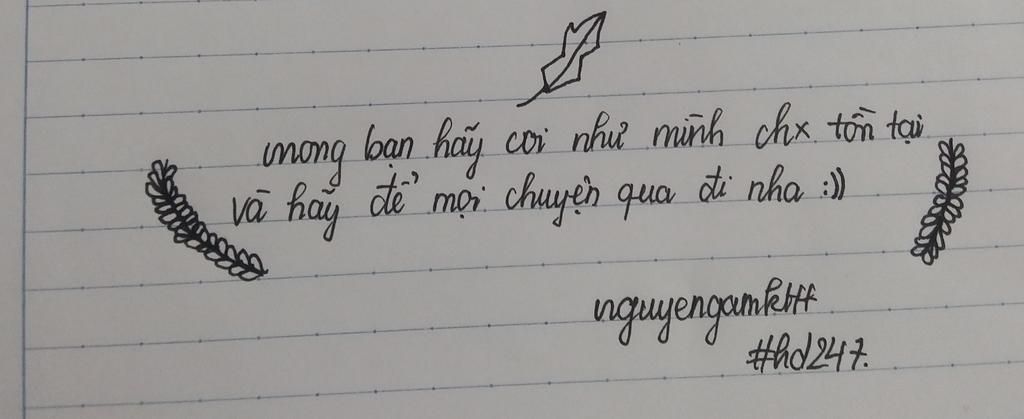 mong bạn hãy coi như mình chx tồn tại
và hãy để mọi chuyện qua đi nha :))
#hd247.